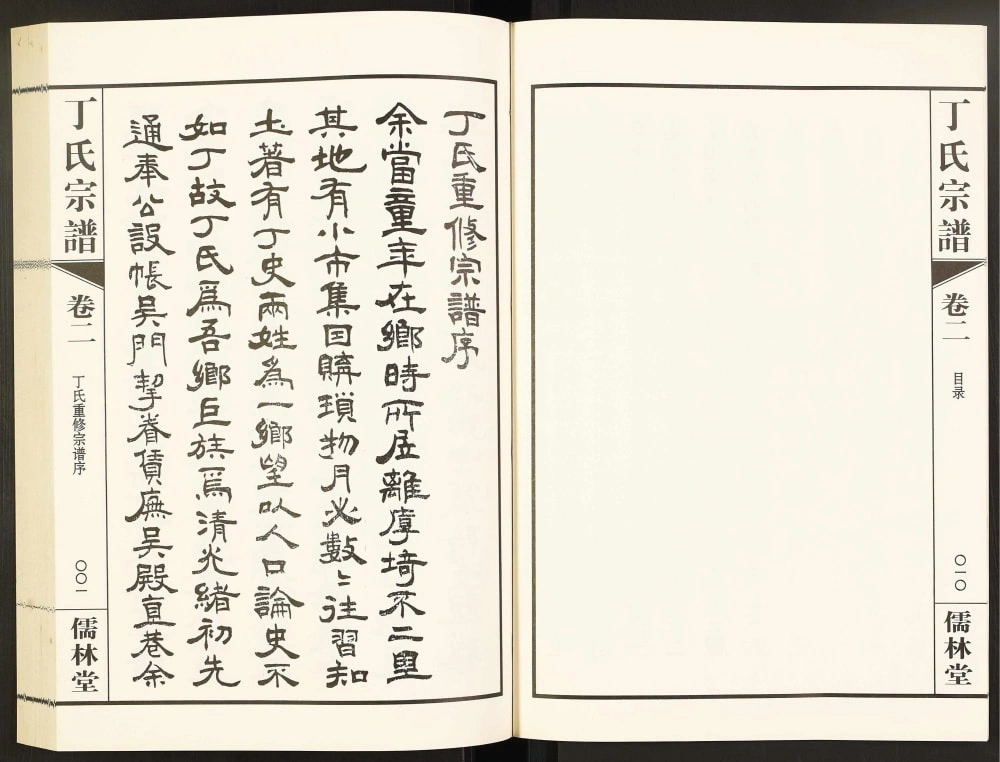 丁氏宗譜
卷二
目录
〇一〇
儒林堂
丁氏重修宗譜序
余當童年在鄉時所居離虖埼不二里
其地有小市集因購瑣物月必數〻往習知
土著有丁史兩姓為一鄉望以人口論史不
如丁故丁氏爲吾鄉巨族爲清光緒初先
通奉公設帳吴門挈眷賃廡吴殿直巷余
丁氏宗譜
卷二
丁氏重修宗谱序
〇〇一
儒林堂